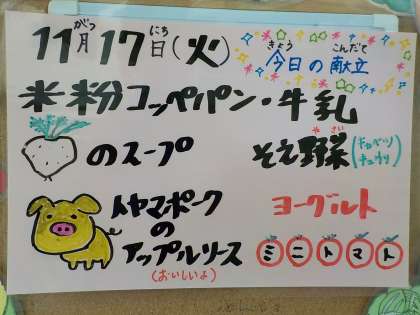 11月17日(火)
がつ にち
きょう こんだて
今日の献立
米粉コッペパン・牛乳
のスープ
やさい
そえ野菜(キャベツ
キュウリ)
トヤマポーク
の
アップルソース
(おいしいよ)
ヨーグルト
ミニトマト